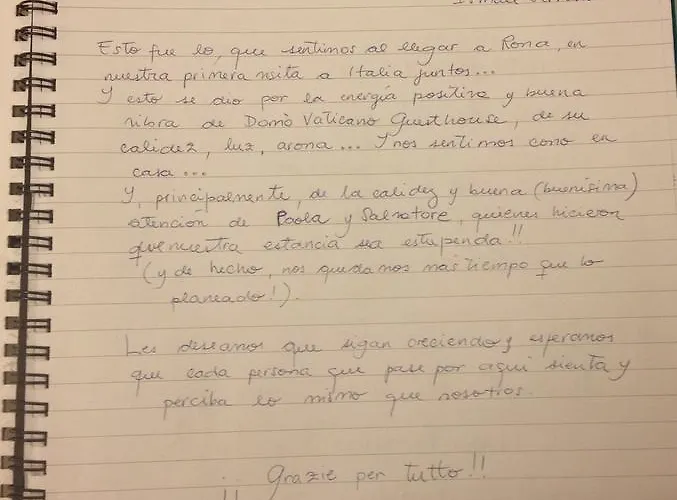 Esto fue lo, que sentimos al llegar a Roma, en
nuestra primera visita a Italia juntos...
Y esto se dio por la energía positiva y buena
vibra de Domo Vaticano Guesthouse, de su
calidez, luz, aroma... Y nos sentimos como en
casa...
Y, principalmente, de la calidez y buena (buenísima)
atención de Paola y Salvatore, quienes hicieron
que nuestra estancia sea estupenda!!
(y de hecho, nos quedamos mas tiempo que lo
planeado!).
Les deseamos que sigan creciendo y esperamos
que cada persona que pase por aquí sienta y
perciba lo mismo que nosotros.
Grazie per tutto!!